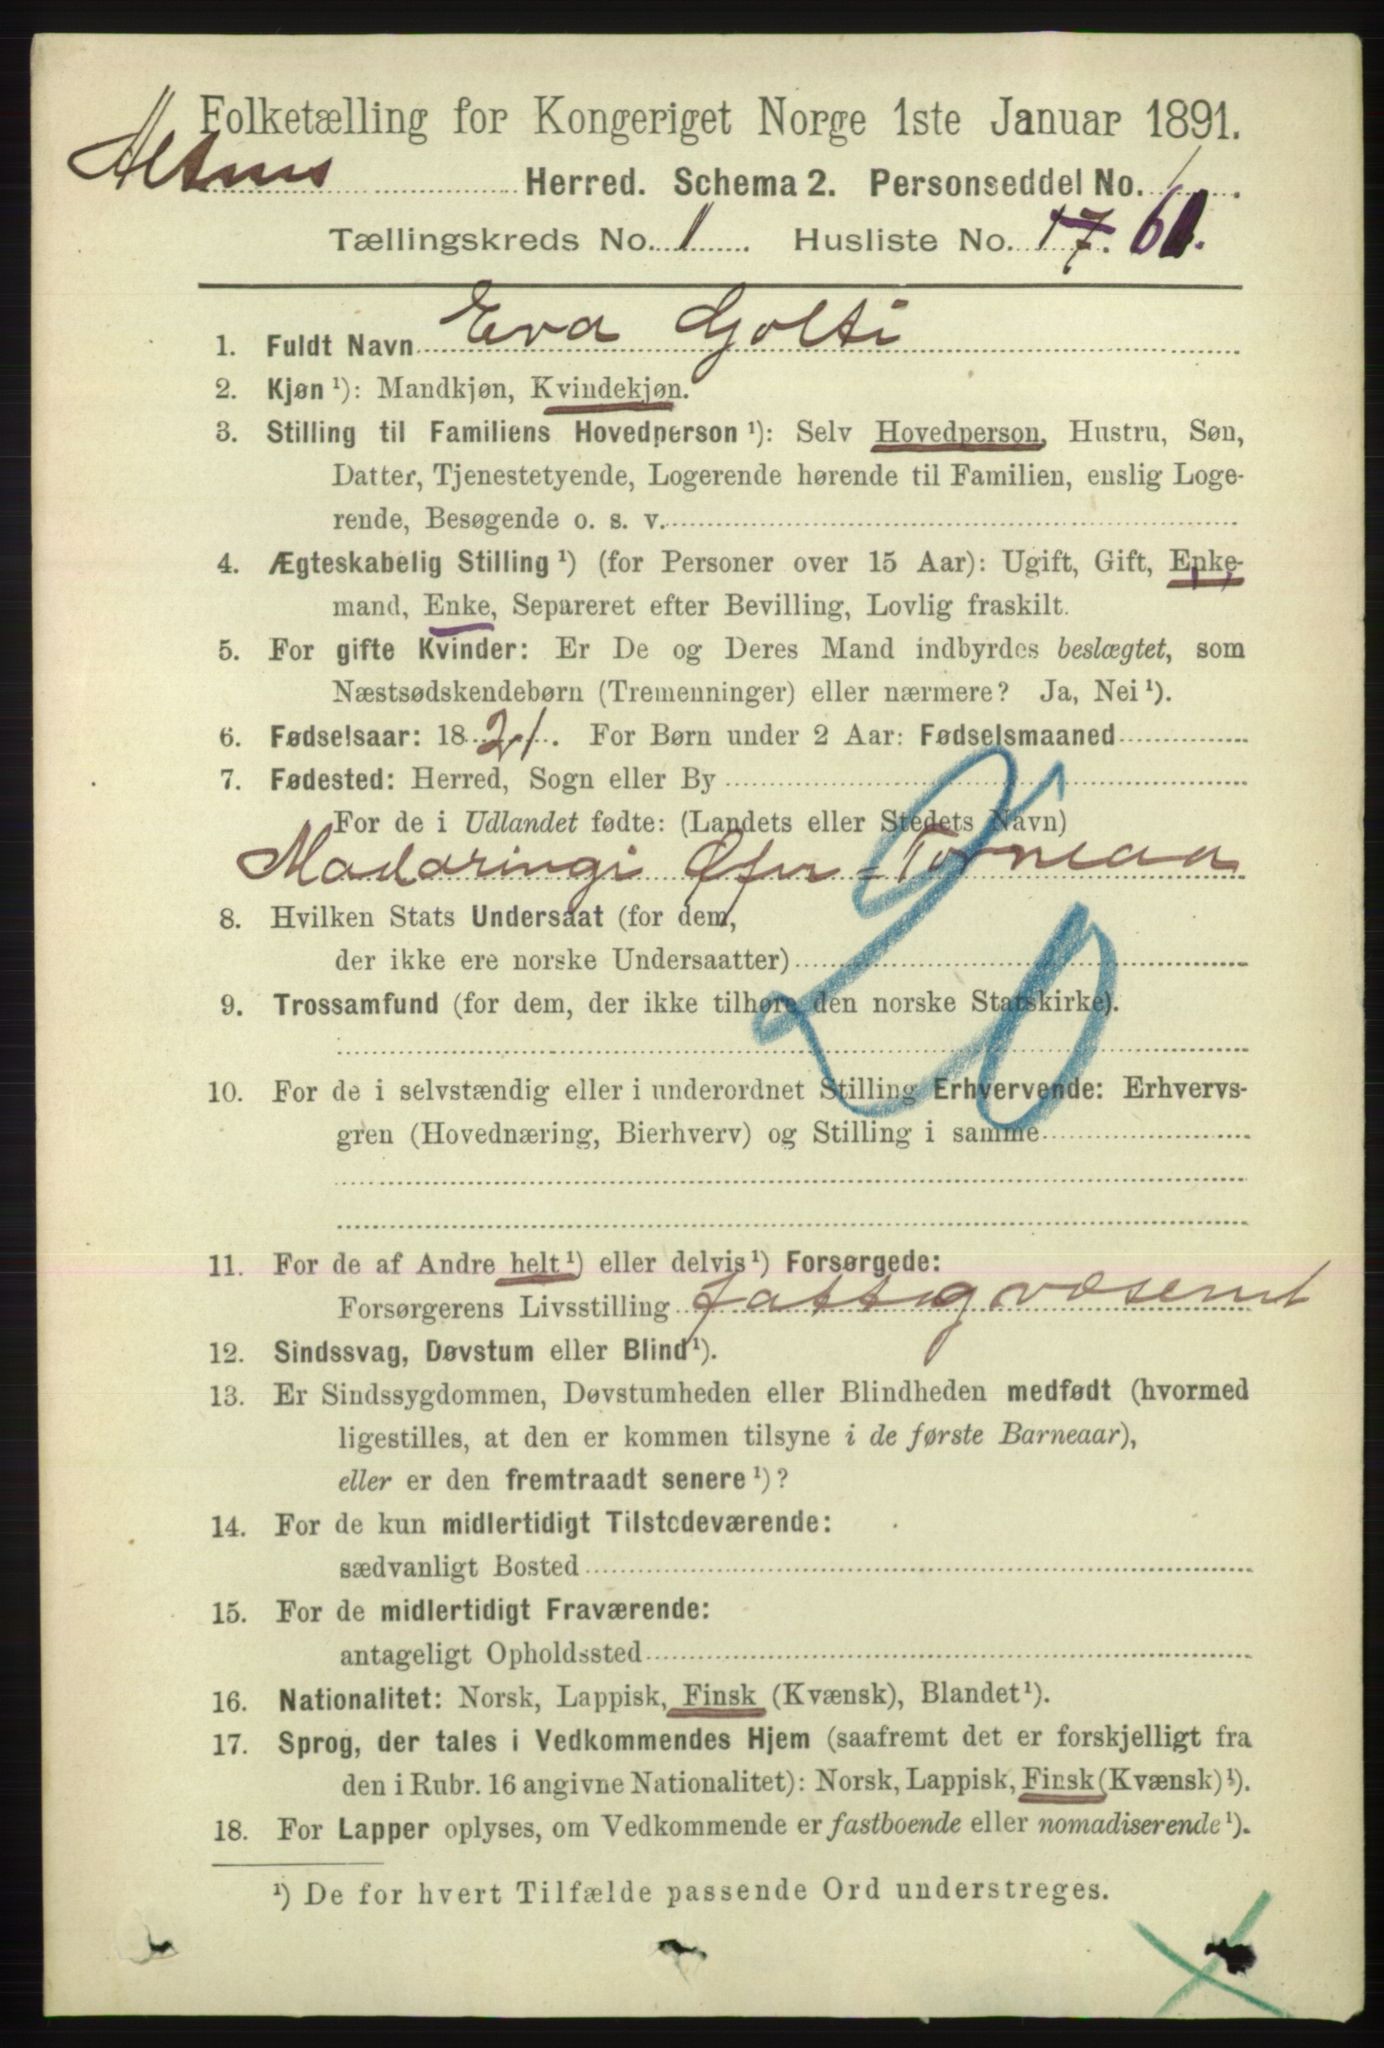 Folketælling for Kongeriget Norge 1ste Januar 1891.
Altens Herred. Schema 2. Personseddel No. 1.
Tællingskreds No. 1. Husliste No. 17. 61.
1. Fuldt Navn Eva Golti
2. Kjøn ¹): Mandkjøn, Kvindekjøn.
3. Stilling til Familiens Hovedperson ¹): Selv Hovedperson, Hustru, Søn,
Datter, Tjenestetyende, Logerende hørende til Familien, enslig Loge-
rende, Besøgende o. s. v.
4. Ægteskabelig Stilling ¹) (for Personer over 15 Aar): Ugift, Gift, Enke-
mand, Enke, Separeret efter Bevilling, Lovlig fraskilt.
5. For gifte Kvinder: Er De og Deres Mand indbyrdes beslægtet, som
Næstsødskendebørn (Tremenninger) eller nærmere? Ja, Nei ¹).
6. Fødselsaar: 1821. For Børn under 2 Aar: Fødselsmaaned
7. Fødested: Herred, Sogn eller By
For de i Udlandet fødte: (Landets eller Stedets Navn)
Madaringi Øfer=Torneaa
20
8. Hvilken Stats Undersaat (for dem,
der ikke ere norske Undersaatter)
9. Trossamfund (for dem, der ikke tilhøre den norske Statskirke).
10. For de i selvstændig eller i underordnet Stilling Erhvervende: Erhvervs-
gren (Hovednæring, Bierhverv) og Stilling i samme
11. For de af Andre helt ¹) eller delvis ¹) Forsørgede:
Forsørgerens Livsstilling Fattigvæsenet
12. Sindssvag, Døvstum eller Blind ¹).
13. Er Sindssygdommen, Døvstumheden eller Blindheden medfødt (hvormed
ligestilles, at den er kommen tilsyne i de første Barneaar),
eller er den fremtraadt senere ¹)?
14. For de kun midlertidigt Tilstedeværende:
sædvanligt Bosted
15. For de midlertidigt Fraværende:
antageligt Opholdssted
16. Nationalitet: Norsk, Lappisk, Finsk (Kvænsk), Blandet ¹).
17. Sprog, der tales i Vedkommendes Hjem (saafremt det er forskjelligt fra
den i Rubr. 16 angivne Nationalitet): Norsk, Lappisk, Finsk (Kvænsk) ¹).
18. For Lapper oplyses, om Vedkommende er fastboende eller nomadiserende ¹).
¹) De for hvert Tilfælde passende Ord understreges.